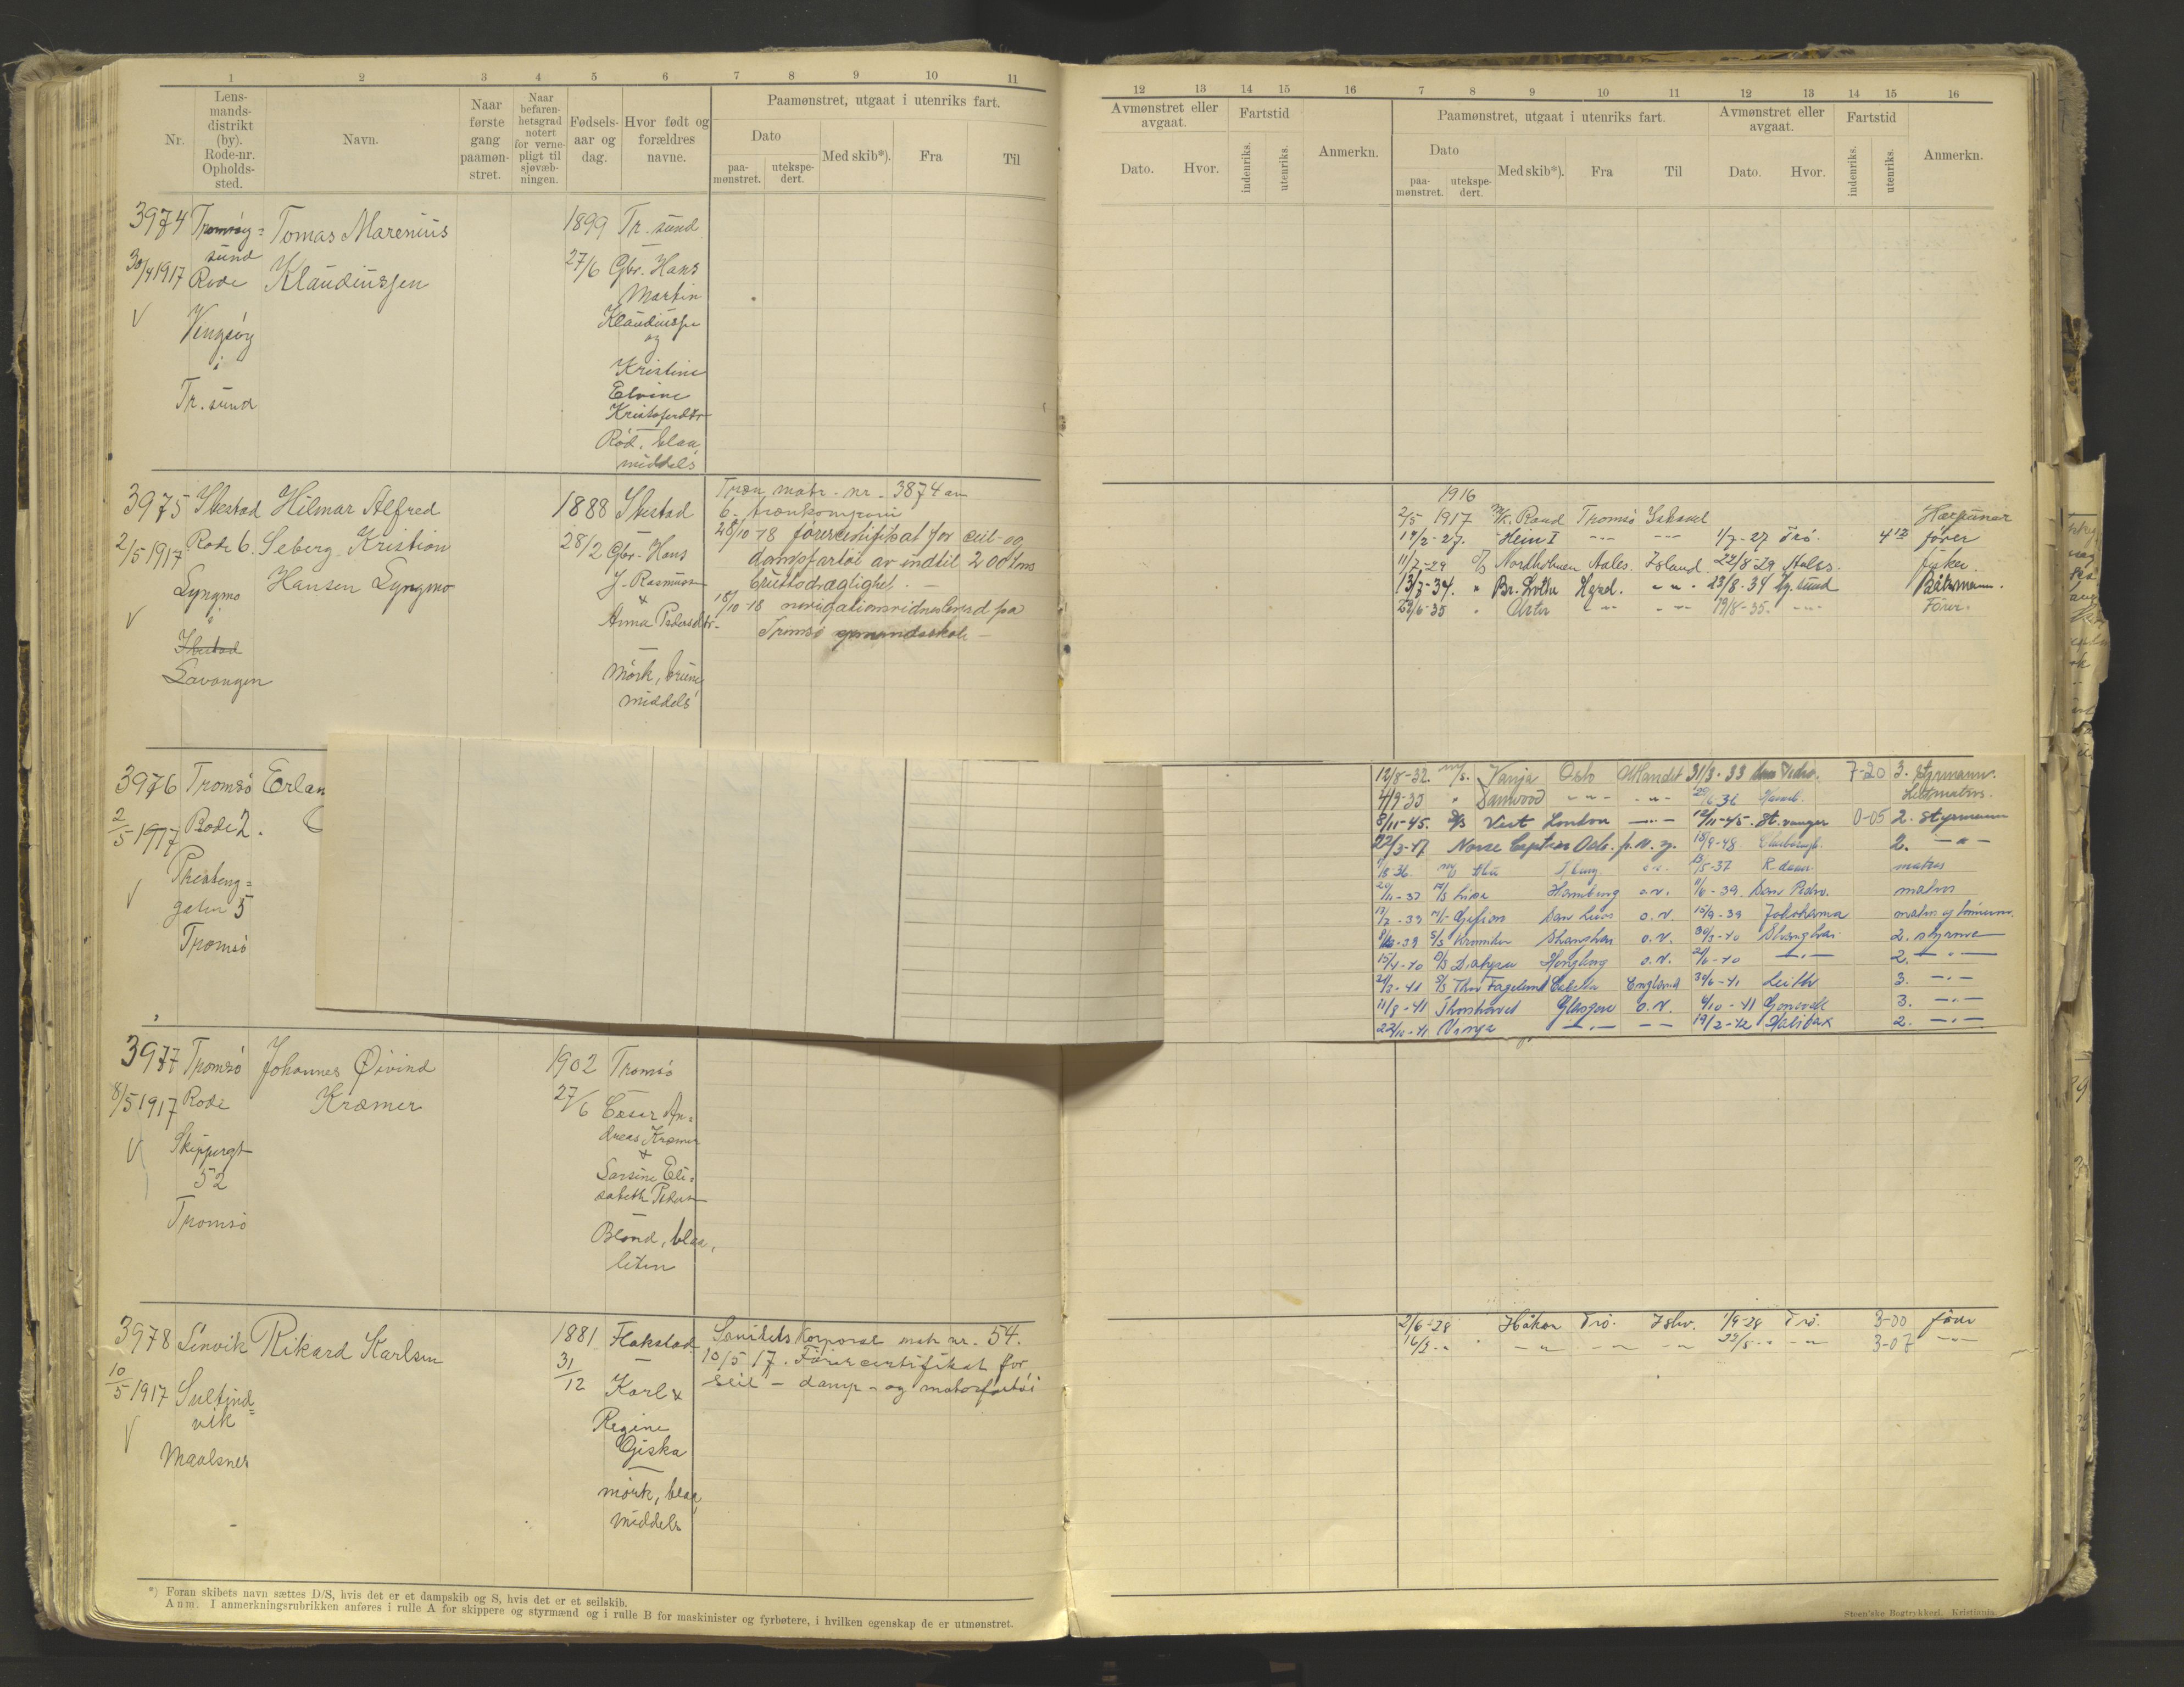 1 2 3 4 5 6 7 8 9 10 11
Nr.
Lens-
mands-
distrikt
(by).
Rode-nr.
Opholds-
sted.
Navn.
Naar
første
gang
paamøn-
stret.
Naar
befaren-
hetsgrad
notert
for verne-
pligt til
sjøvæb-
ningen.
Fødsels-
aar og
dag.
Hvor født og
forældres
navne.
Paamønstret, utgaat i utenriks fart.
Dato
paa-
mønstret.
utekspe-
dert.
Med skib*).
Fra
Til
3974 Tromsøy=
sund
30/4 1917 Rode
Vengsøy
i
Tr. sund
Tomas Marenius
Klaudiussen
1899 Tr. sund
27/6 Gbr. Hans
Martin
Klaudiussen
og
Kristine
Elvine
Kristoferdtr
Rød, blaa,
middels
3975 Ibestad Hilmar Alfred
2/5 1917 Rode 6. Seberg Kristian
Lyngmo Hansen Lyngmo
i
Ibestad
Lavangen
1888 Ibestad
28/2 Gbr. Hans
J. Rasmussen
&
Anna Pedersdtr
Mørk, brune,
middels
Træn matr. nr. 3874 av
6. trænkompani
28/10 18 førercertifikat for seil- og
dampfartøi av indtil 200 tons
bruttodrægtighet. —
18/10 18 navigationsvidnesbyrd fra
Tromsø sømandsskole —
3976 Tromsø Erlan
2/5 1917 Rode 2.
Presteng=
gaten 5
Tromsø
3977 Tromsø Johannes Øivind
8/5 1917 Rode Kræmer
Skippergt
52
Tromsø
1902 Tromsø
27/6 Cæsar An=
dreas Kræmer
&
Larsine Eli=
sabeth Petersen
Blond, blaa,
liten
3978 Lenvik Rikard Karlsen
10/5 1917 Sultind=
vik
Maalsnes
1881 Flakstad
31/12 Karl &
Regine
Giska
mørk, blaa,
middels
Sanitets korporal matr nr. 54.
10/5 17. Førercertifikat for
seil - damp - og motorfartøi
*) Foran skibets navn sættes D/S, hvis det er et dampskib og S, hvis det er et seilskib.
Anm. I anmerkningsrubrikken anføres i rulle A for skippere og styrmænd og i rulle B for maskinister og fyrbøtere, i hvilken egenskap de er utmønstret.
12 13 14 15 16 7 8 9 10 11 12 13 14 15 16
Avmønstret eller
avgaat.
Dato. Hvor.
Fartstid
indenriks. utenriks.
Anmerkn.
Paamønstret, utgaat i utenriks fart.
Dato
paa-
mønstret.
utekspe-
dert.
Med skib*). Fra Til
Avmønstret eller
avgaat.
Dato. Hvor.
Fartstid
indenriks. utenriks.
Anmerkn.
1916
2/5 1917 M/k. Raud Tromsø Ishavet Harpuner
14/2-27. Heim I -"- -"- 1/7-27 Trø. 4 12 fører
11/7-29 Nordholmen Aales. Island 24/8-29 Aales. fisker
13/7-34. " Br. Hgsd. -"- 23/8-34 Hg.sund Båtsmann.
29/6-35 " -"- -"- 19/8-35. -"- Fører.
12/8-32. m/s. Vanja Oslo Utlandet 31/3-33 7-20 3. styrmann.
4/9-35 " Danwood -"- -"- Lettmatros.
8/11-45. D/S Vest London -"- 12/11-45. St.vanger 0-05 2. styrmann
22/3-47 Norse Captain Oslo 18/9-48 2. -"-
R.dam matros
Hamburg o.v. 11/6-39. San Pedro. matros
o.v. 15/9-39 Jokohama matros og tømmerm.
Shanghai o.v. 30/3-40 Shanghai 2. styrmann
15/4-40 Hongkong o.v. 2. -"-
England 30/6-41 Leith 3. -"-
11/8-41 Thorshavet Glasgow o.v. 4/10-41 3. -"-
22/10-41 Vanja -"- -"- 19/2-42 Halifax 2. -"-
2/6-28 " Håkon Trø. Ishv. 1/9-28 Trø. 3-00 fører
16/5-" " -"- -"- -"- 22/8-" -"- 3-07 -"-
Steen'ske Bogtrykkeri. Kristiania.